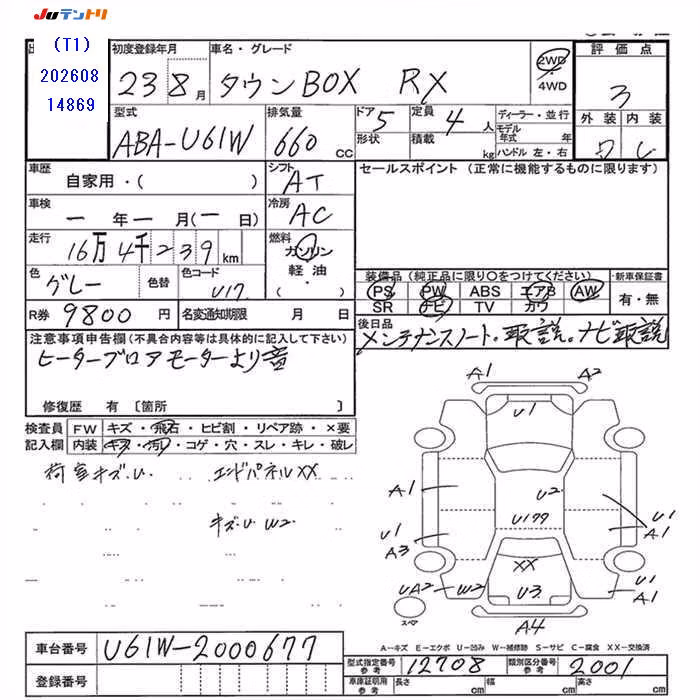 JUテントリ
(T1)
202608
14869
初度登録年月
23 8月
車名・グレード
タウンBOX RX
2WD
4WD
評価点
3
外装 内装
型式
ABA-U61W
排気量
660 CC
ドア
5
形状
定員
4人
積載
kg
ディーラー・並行
モデル年式 年
ハンドル 左・右
車歴
自家用・( )
シフト
AT
セールスポイント (正常に機能するものに限ります)
車検
ー年ー月(ー日)
冷房
AC
走行
16万4千239km
燃料
ガソリン
軽油・
( )
色
グレー
色替
色コード
U17
装備品(純正品に限り○をつけてください)
PS PW ABS エアB AW
SR ナビ TV カワ
・新車保証書
有・無
R券
9800円
名変通知期限 月 日
後日品
メンテナンスノート。取説。ナビ取説
注意事項申告欄(不具合内容等は具体的に記入して下さい)
ヒーターブロアモーターより音
修復歴 有 〔箇所 〕
検査員記入欄
FW キズ・飛石・ヒビ割・リペア跡・×要
内装 キズ・汚れ・コゲ・穴・スレ・キレ・破レ
荷室キズ.U. エンドパネルXX
キズU W2.
A1 A2
U1
A1
U2
U1 U177 U1
A3 A1
XX
UA2 W2 U3 U1
A1
スペア
A4
A-キズ E-エクボ U-凹み W-補修跡 S-サビ C-腐食 XX-交換済
車台番号
U61W-2000677
登録番号
型式指定番号
参考
12708
類別区分番号
参考
2001
車庫証明用
参考
長さ cm 幅 cm 高さ cm